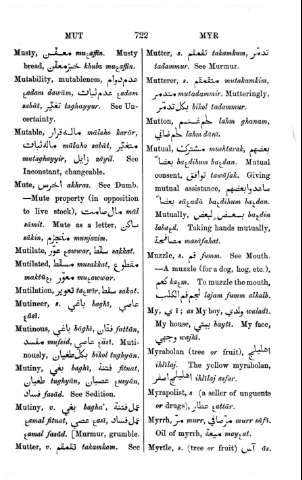 MUT 722 MYR
Musty, معفّن muɛaffin. Musty
bread, خبز معفّن khubz muɛaffin.
Mutability, mutableness, عدم دوام
ɛadam dawām, عدم ثبات ɛadam
sabāt, تغيّر taghayyur. See Un-
certainty.
Mutable, ماله قرار mālaho karār,
ماله ثبات mālaho sabāt, متغيّر
mutaghayyir, زايل zāyil. See
Inconstant, changeable.
Mute, أخرس akhras. See Dumb.
—Mute property (in opposition
to live stock), مال صامت māl
sāmit. Mute as a letter, ساكن
sākin, منجزم munjazim.
Mutilate, عوّر ɛawwar, سقّط sakkat.
Mutilated, مسقّط musakkat, مقطوع
maktūɛ, معوّر muɛawwar.
Mutilation, تعوير taɛwīr, سقط sakt.
Mutineer, s. باغي baghī, عاصي
ɛāsī.
Mutinous, باغي bāghī, فتّان fattān,
مفسد mufsid, عاصي ɛāsī. Muti-
nously, بكل طغيان bikol tughyān.
Mutiny, بغي baghī, عمل فتنة
ɛamal fitnat, عصي ɛasī, طغيان
tughyān, عصيان ɛusyān,
فساد fasād. See Sedition.
Mutiny, v. بغى bagha', عمل فتنة
ɛamal fitnat, عصى ɛasī, عمل فساد
ɛamal fasād. [Murmur, grumble.
Mutter, v. تقمقم takamkam. See
Mutter, s. تقمقم takamkum, تدمّر
tadammur. See Murmur.
Mutterer, s. متقمقم mutakamkim,
متدمّر mutadammir. Mutteringly,
بكل تدمّر bikol tadammur.
Mutton, لحم غنم lahm ghanam,
لحم ضاني lahm dānī.
Mutual, مشترك mushtarak, بعضهم
بعضا baɛdihum baɛdan. Mutual
consent, توافق tawāfuk. Giving
mutual assistance, ساعدوا بعضهم
بعضا sāɛadū baɛdihum baɛdan.
Mutually, بعض لبعض baɛdin
labaɛd. Taking hands mutually,
مصافحة musāfahat.
Muzzle, s. فم fumm. See Mouth.
—A muzzle (for a dog, hog, etc.),
كعم kaɛm. To muzzle the mouth,
لجم فم الكلب lajam fumm alkalb.
My, ي ī; as My boy, ولدي waladī.
My house, بيتي baytī. My face,
وجهي wajhī.
Myrabolan (tree or fruit), إهليلج
ihlīlaj. The yellow myrabolan,
إهليلج أصفر ihlīlaj asfar.
Myrapolist, s (a seller of unguents
or drugs), عطّار ɛattār.
Myrrh, مرّ murr, مرّ صافي murr sāfī.
Oil of myrrh, ميعة mayɛat.
Myrtle, s. (tree or fruit) آس ās.